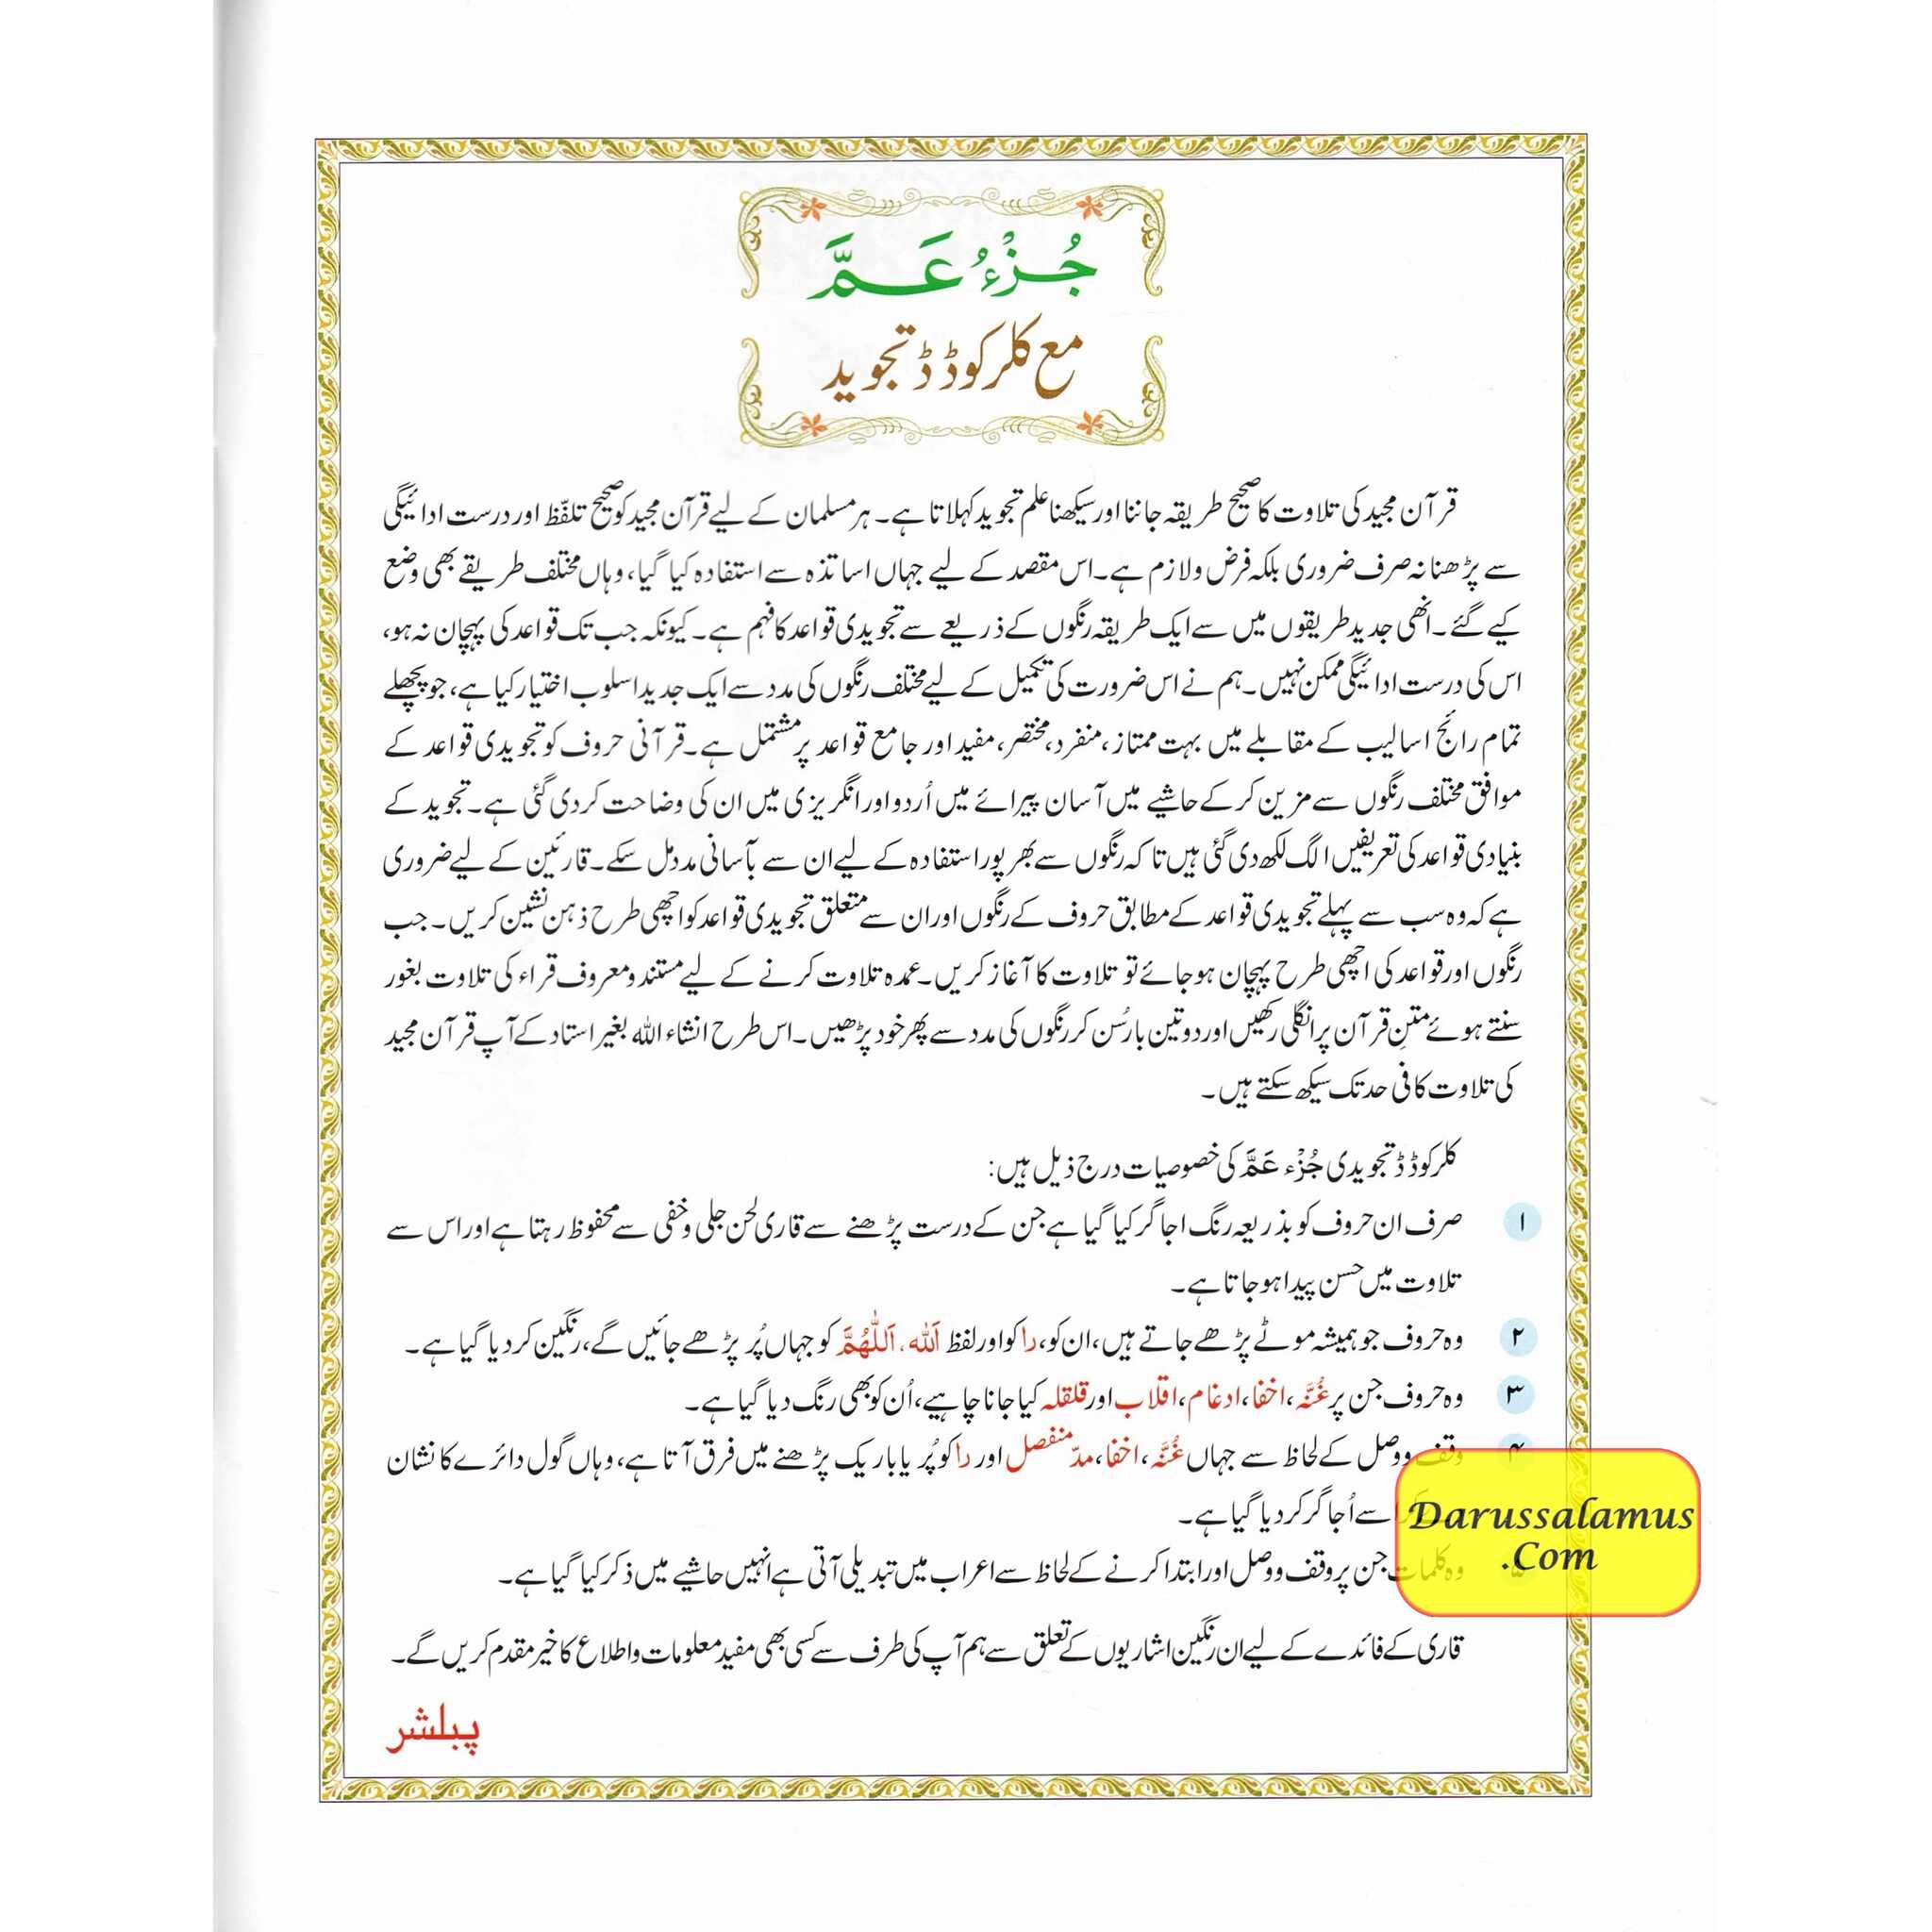 جُزْءُ عَمَّ
مع کلر کوڈڈ تجوید
قرآن مجید کی تلاوت کا صحیح طریقہ جاننا اور سیکھنا علم تجوید کہلاتا ہے۔ ہر مسلمان کے لیے قرآن مجید کو صحیح تلفّظ اور درست ادائیگی
سے پڑھنا نہ صرف ضروری بلکہ فرض ولازم ہے۔ اس مقصد کے لیے جہاں اساتذہ سے استفادہ کیا گیا، وہاں مختلف طریقے بھی وضع
کیے گئے۔ انھی جدید طریقوں میں سے ایک طریقہ رنگوں کے ذریعے سے تجویدی قواعد کا فہم ہے۔ کیونکہ جب تک قواعد کی پہچان نہ ہو،
اس کی درست ادائیگی ممکن نہیں۔ ہم نے اس ضرورت کی تکمیل کے لیے مختلف رنگوں کی مدد سے ایک جدید اسلوب اختیار کیا ہے، جو پچھلے
تمام رائج اسالیب کے مقابلے میں بہت ممتاز، منفرد، مختصر، مفید اور جامع قواعد پر مشتمل ہے۔ قرآنی حروف کو تجویدی قواعد کے
موافق مختلف رنگوں سے مزین کر کے حاشیے میں آسان پیرائے میں اُردو اور انگریزی میں ان کی وضاحت کر دی گئی ہے۔ تجوید کے
بنیادی قواعد کی تعریفیں الگ لکھ دی گئی ہیں تا کہ رنگوں سے بھر پور استفادہ کے لیے ان سے بآسانی مدد مل سکے۔ قارئین کے لیے ضروری
ہے کہ وہ سب سے پہلے تجویدی قواعد کے مطابق حروف کے رنگوں اور ان سے متعلق تجویدی قواعد کو اچھی طرح ذہن نشین کریں۔ جب
رنگوں اور قواعد کی اچھی طرح پہچان ہو جائے تو تلاوت کا آغاز کریں۔ عمدہ تلاوت کرنے کے لیے مستند ومعروف قراء کی تلاوت بغور
سنتے ہوئے متنِ قرآن پر انگلی رکھیں اور دو تین بار سُن کر رنگوں کی مدد سے پھر خود پڑھیں۔ اس طرح انشاء اللہ بغیر استاد کے آپ قرآن مجید
کی تلاوت کافی حد تک سیکھ سکتے ہیں۔
کلر کوڈڈ تجویدی جُزْء عَمَّ کی خصوصیات درج ذیل ہیں:
۱ صرف ان حروف کو بذریعہ رنگ اجاگر کیا گیا ہے جن کے درست پڑھنے سے قاری لحن جلی وخفی سے محفوظ رہتا ہے اور اس سے
تلاوت میں حسن پیدا ہو جاتا ہے۔
۲ وہ حروف جو ہمیشہ موٹے پڑھے جاتے ہیں، ان کو، را کو اور لفظ اَللہ، اَللّٰهُمَّ کو جہاں پُر پڑھے جائیں گے، رنگین کر دیا گیا ہے۔
۳ وہ حروف جن پر غُنَّہ، اخفا، ادغام، اقلاب اور قلقلہ کیا جانا چاہیے، اُن کو بھی رنگ دیا گیا ہے۔
۴ وقف ووصل کے لحاظ سے جہاں غُنَّہ، اخفا، مدّ منفصل اور را کو پُر یا باریک پڑھنے میں فرق آتا ہے، وہاں گول دائرے کا نشان
اسے اُجاگر کر دیا گیا ہے۔
وہ کلمات جن پر وقف ووصل اور ابتدا کرنے کے لحاظ سے اعراب میں تبدیلی آتی ہے انہیں حاشیے میں ذکر کیا گیا ہے۔
Darussalamus
.Com
قاری کے فائدے کے لیے ان رنگین اشاریوں کے تعلق سے ہم آپ کی طرف سے کسی بھی مفید معلومات واطلاع کا خیر مقدم کریں گے۔
پبلشر